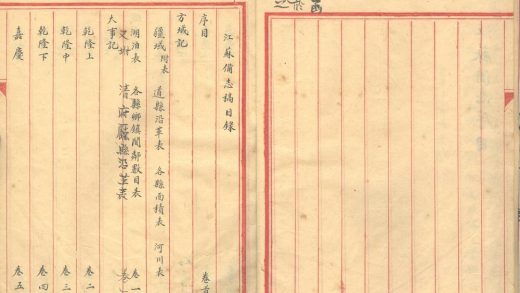 江蘇備志稿目錄
序目 卷首
方域記
疆域 附表 道縣沿革表 各縣面積表 河川表
湖泊表 各縣鄉鎮閭鄰數目表 卷一
又附 清府廳縣沿革表
大事記
乾隆上 卷二
乾隆中 卷三
乾隆下 卷四
嘉慶 卷五